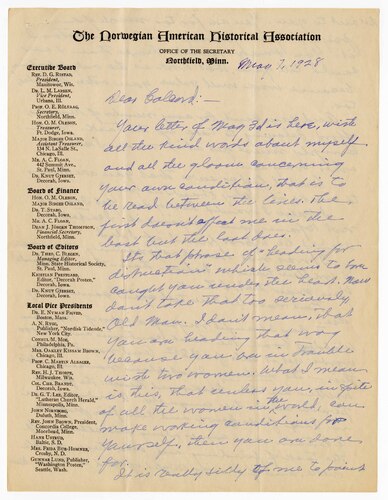 The Norwegian American Historical Association
OFFICE OF THE SECRETARY
Northfield, Minn.
May 7, 1928
Executive Board
REV. D. G. RISTAD,
President,
Manitowoc, Wis.
DR. L. M. LARSEN,
Vice President,
Urbana, Ill.
PROF. O. E. RÖLVAAG,
Secretary,
Northfield, Minn.
HON. O. M. OLESON,
Treasurer,
Ft. Dodge, Iowa.
MAJOR BIRGER OSLAND,
Assistant Treasurer,
134 N. LaSalle St.,
Chicago, Ill.
MR. A. C. FLOAN,
442 Summit Ave.,
St. Paul, Minn.
DR. KNUT GJERSET,
Decorah, Iowa.
Board of Finance
HON. O. M. OLESON,
MAJOR BIRGER OSLAND,
DR. T. STABO,
Decorah, Iowa.
MR. A. C. FLOAN,
DEAN J. JÖRGEN THOMPSON,
Financial Secretary,
Northfield, Minn.
Board of Editors
DR. THEO. C. BLEGEN,
Managing Editor,
Minn. State Historical Society,
St. Paul, Minn.
KRISTIAN PRESTGARD,
Editor, "Decorah Posten,"
Decorah, Iowa.
DR. KNUT GJERSET,
Decorah, Iowa.
Local Vice Presidents
DR. E. NYMAN FIGVED,
Boston, Mass.
A. N. RYGG,
Publisher, "Nordisk Tidende,"
New York City.
CONSUL M. MOE,
Philadelphia, Pa.
MRS. OAKLEY KISSAM BROWN,
Chicago, Ill.
PROF. C. MARIUS
Chicago, Ill.
REV. H. J. THORPE,
Milwaukee, Wis.
COL. CHR. BRANDT,
Decorah, Iowa.
DR. G. T. LEE, Editor
"Lutheran Church Herald,"
Minneapolis, Minn.
JOHN
Duluth, Minn.
REV. JOHN BROWN, President,
Concordia College,
Moorhead, Minn.
HANS USTRUD,
Baltic, S. D.
MRS. FRIDA BUE-HOMNES,
Crosby, N. D.
GUNNAR LUND, Publisher,
"Washington Posten,"
Seattle, Wash.
Dear Colcord:—
Your letter of May 3d is here, with
all the kind words about myself
and all the gloom concerning
your own condition, that is to
be read between the lines. The
first doesn't affect me in the
least but the last does.
It's that phrase of "heading for
destruction" which seems to have
caught you under the heart. Now
don't take that too seriously
Old Man. I don't mean, that
you are heading that way
because you are in trouble
with two women. What I mean
is this, that unless you, in spite
of all the women in the world, can
make working conditions for
yourself, then you are done
for.
It is really silly of me to point